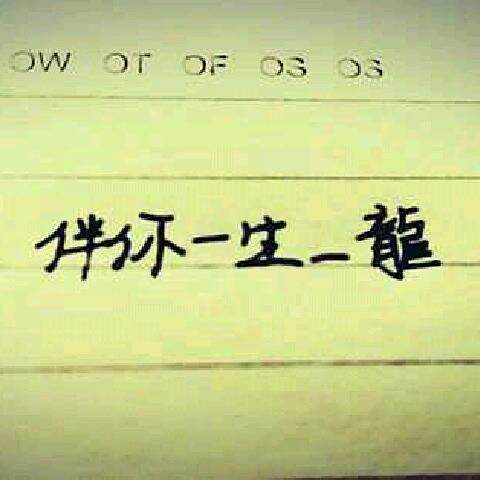 OW OT OF OS OS
伴你一生_龍